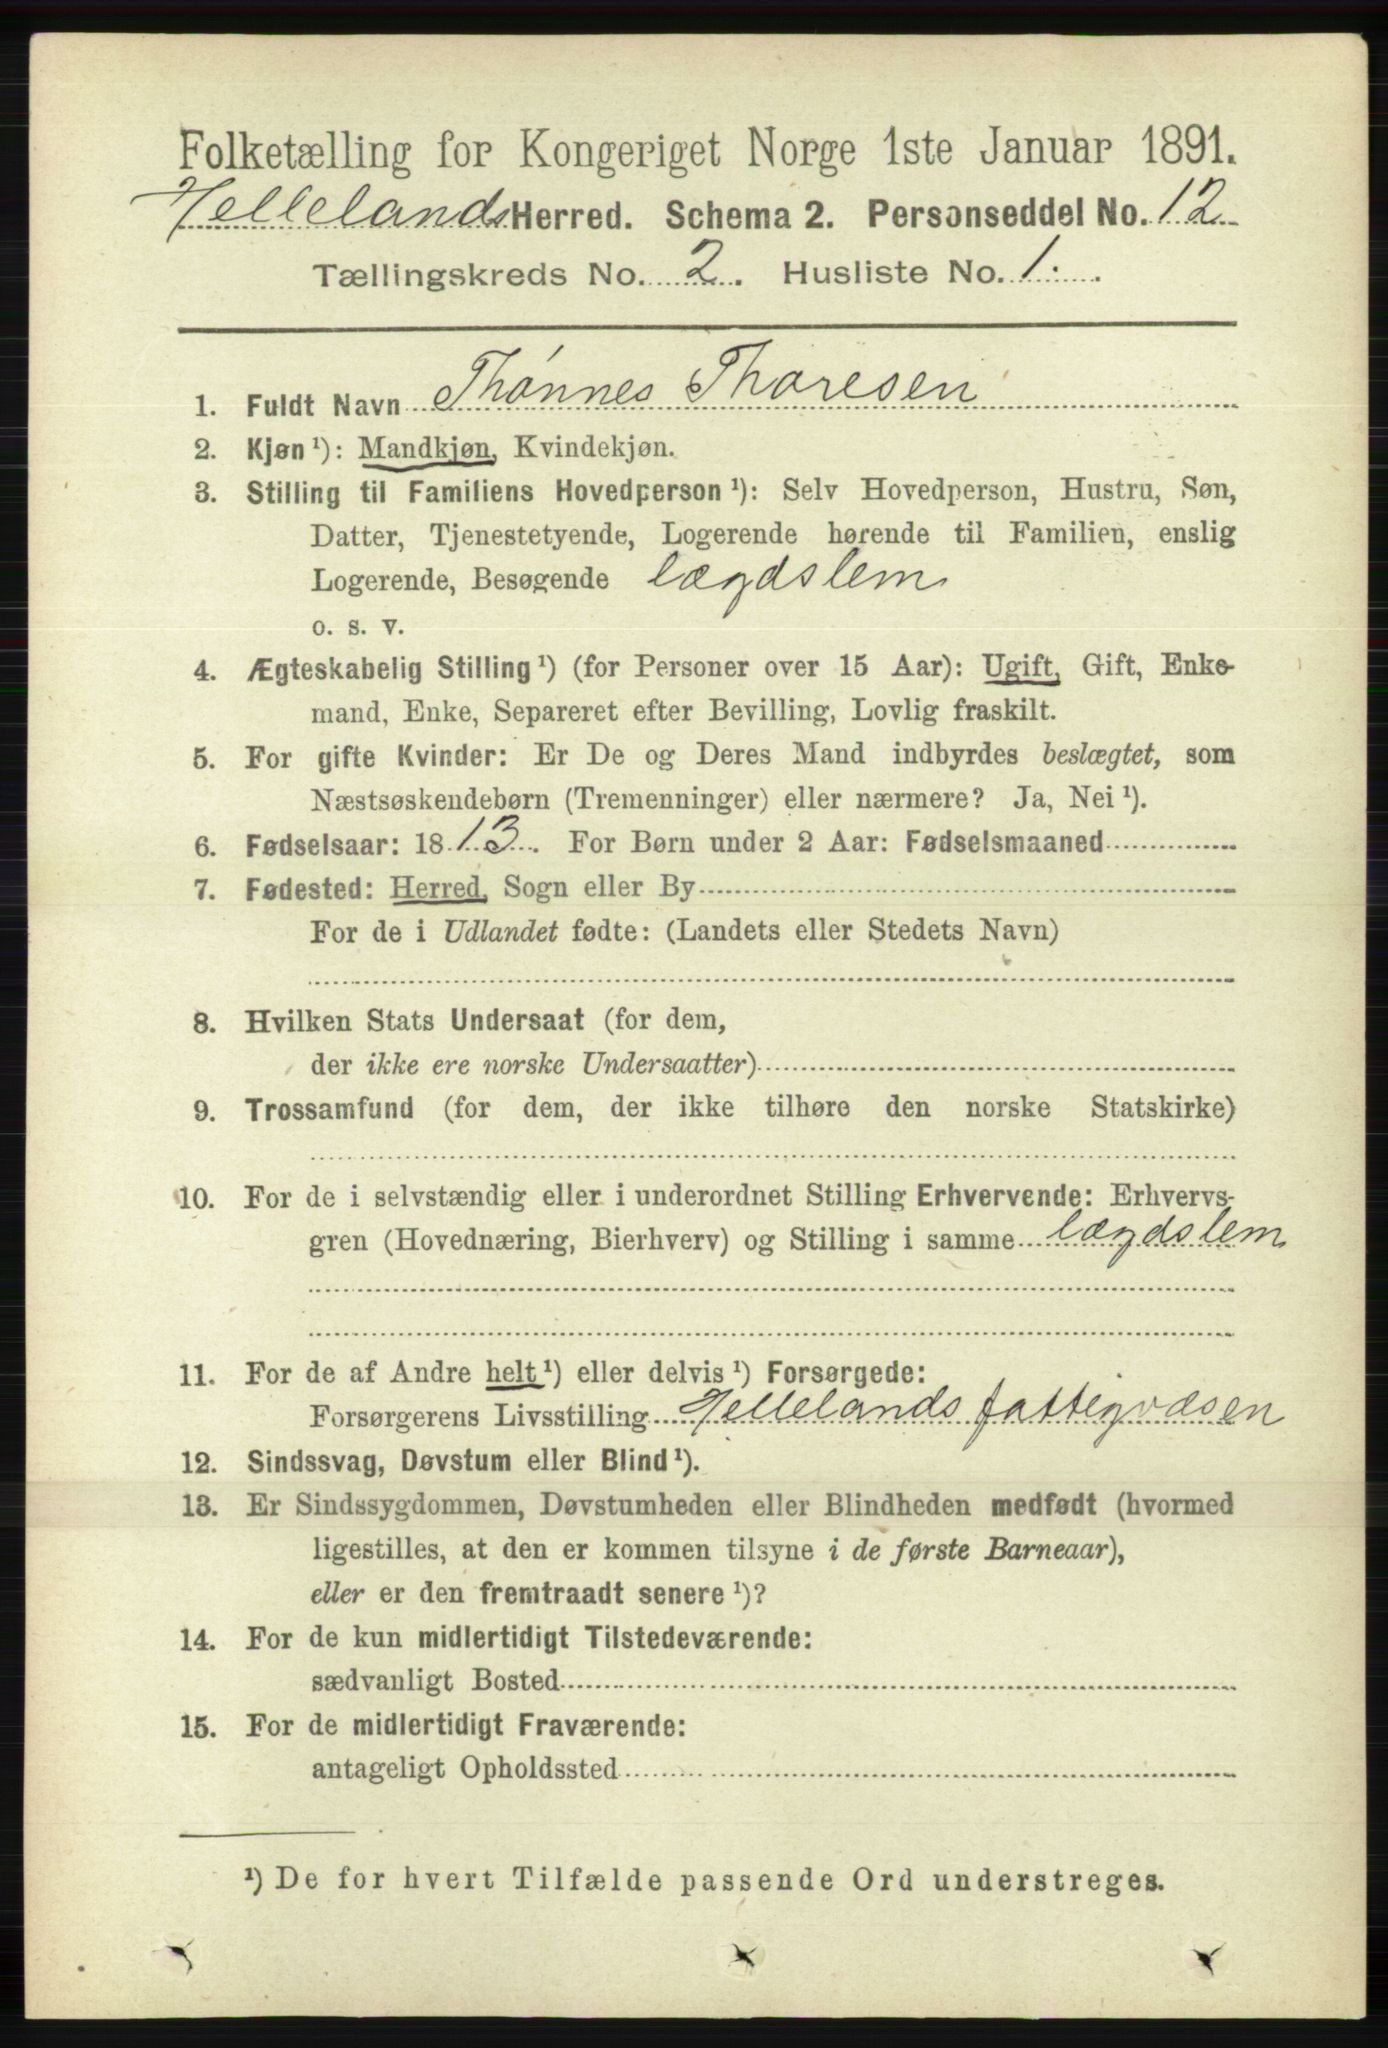 Folketælling for Kongeriget Norge 1ste Januar 1891.
Hellelands Herred. Schema 2. Personseddel No. 12
Tællingskreds No. 2. Husliste No. 1.
1. Fuldt Navn Thónnes Thoresen
2. Kjøn ¹): Mandkjøn, Kvindekjøn.
3. Stilling til Familiens Hovedperson ¹): Selv Hovedperson, Hustru, Søn,
Datter, Tjenestetyende, Logerende hørende til Familien, enslig
Logerende, Besøgende lægdslem
o. s. v.
4. Ægteskabelig Stilling ¹) (for Personer over 15 Aar): Ugift, Gift, Enke-
mand, Enke, Separeret efter Bevilling, Lovlig fraskilt.
5. For gifte Kvinder: Er De og Deres Mand indbyrdes beslægtet, som
Næstsøskendebørn (Tremenninger) eller nærmere? Ja, Nei ¹).
6. Fødselsaar: 1813. For Børn under 2 Aar: Fødselsmaaned
7. Fødested: Herred, Sogn eller By
For de i Udlandet fødte: (Landets eller Stedets Navn)
8. Hvilken Stats Undersaat (for dem,
der ikke ere norske Undersaatter)
9. Trossamfund (for dem, der ikke tilhøre den norske Statskirke)
10. For de i selvstændig eller i underordnet Stilling Erhvervende: Erhvervs-
gren (Hovednæring, Bierhverv) og Stilling i samme lægdslem
11. For de af Andre helt ¹) eller delvis ¹) Forsørgede:
Forsørgerens Livsstilling Hellelands fattigvæsen
12. Sindssvag, Døvstum eller Blind ¹).
13. Er Sindssygdommen, Døvstumheden eller Blindheden medfødt (hvormed
ligestilles, at den er kommen tilsyne i de første Barneaar),
eller er den fremtraadt senere ¹)?
14. For de kun midlertidigt Tilstedeværende:
sædvanligt Bosted
15. For de midlertidigt Fraværende:
antageligt Opholdssted
¹) De for hvert Tilfælde passende Ord understreges.